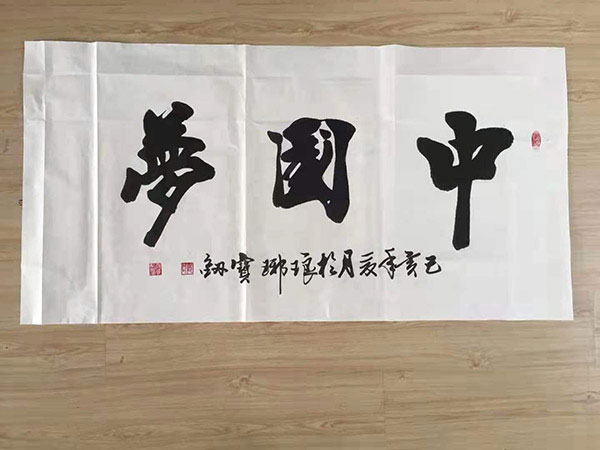 中國夢
己亥年夏月於琅琊寶釼